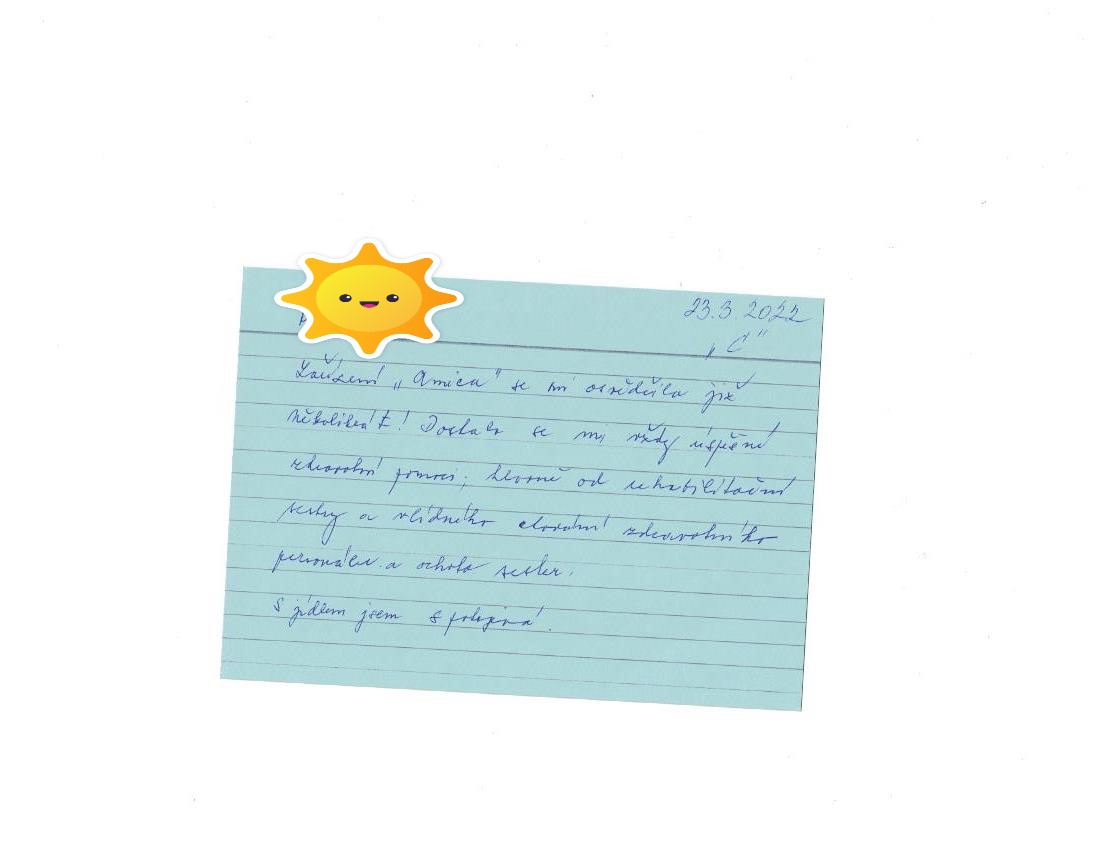 23.3.2022
„C"
Zařízení „Amica" se mi osvědčilo již
několikrát! Dostalo se mi vždy úspěšné
zdravotní pomoci; hlavně od rehabilitační
sestry a vlídného chování zdravotního
personálu a ochota sester.
S jídlem jsem spokojená.